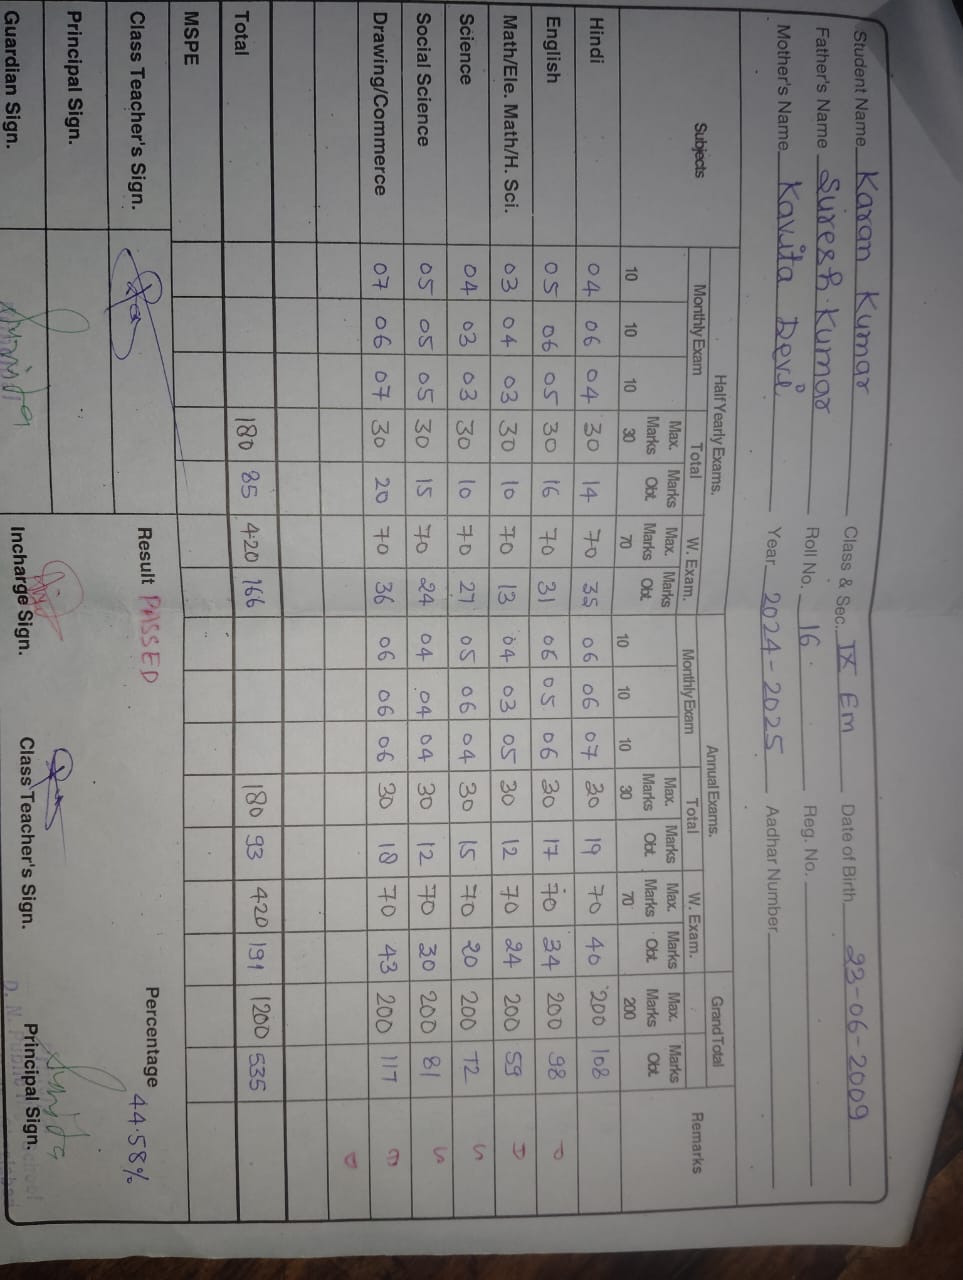 Student Name Karan Kumar Class & Sec. IX Em Date of Birth 23-06-2009
Father's Name Suresh Kumar Roll No. 16 Reg. No.
Mother's Name Kavita Devi Year 2024-2025 Aadhar Number
Subjects Half Yearly Exams. Annual Exams. Grand Total Remarks
Monthly Exam Total W. Exam. Monthly Exam Total W. Exam.
Max. Marks Marks Obt. Max. Marks Marks Obt. Max. Marks Marks Obt. Max. Marks Marks Obt. Max. Marks Marks Obt.
10 10 10 30 70 10 10 10 30 70 200
Hindi 04 06 04 30 14 70 35 06 06 07 30 19 70 40 200 108
English 05 06 05 30 16 70 31 06 05 06 30 17 70 34 200 98
Math/Ele. Math/H. Sci. 03 04 03 30 10 70 13 04 03 05 30 12 70 24 200 59
Science 04 03 03 30 10 70 27 05 06 04 30 15 70 20 200 72
Social Science 05 05 05 30 15 70 24 04 04 04 30 12 70 30 200 81
Drawing/Commerce 07 06 07 30 20 70 36 06 06 06 30 18 70 43 200 117
Total 180 85 420 166 180 93 420 191 1200 535
MSPE
Class Teacher's Sign. Result PASSED Percentage 44.58%
Principal Sign.
Guardian Sign. Incharge Sign. Class Teacher's Sign. Principal Sign.